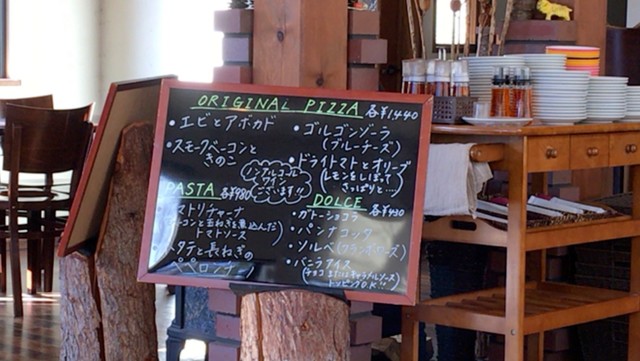 ORIGINAL PIZZA 各¥1,440
・エビとアボカド
・スモークベーコンと
きのこ
・ゴルゴンゾーラ
(ブルーチーズ)
・ドライトマトとオリーブ
(レモンをしぼって
さっぱりと…)
ノンアルコール
ございます!!
PASTA 各¥980
マトリチャーナ
ベーコンと玉ねぎを煮込んだ
トマトソース)
ホタテと長ねぎの
ペペロンチ
DOLCE 各¥430
・ガトーショコラ
・パンナコッタ
・ソルベ(フランボワーズ)
・バニラアイス
(チョコまたはキャラメルソース)
トッピングO.K!!